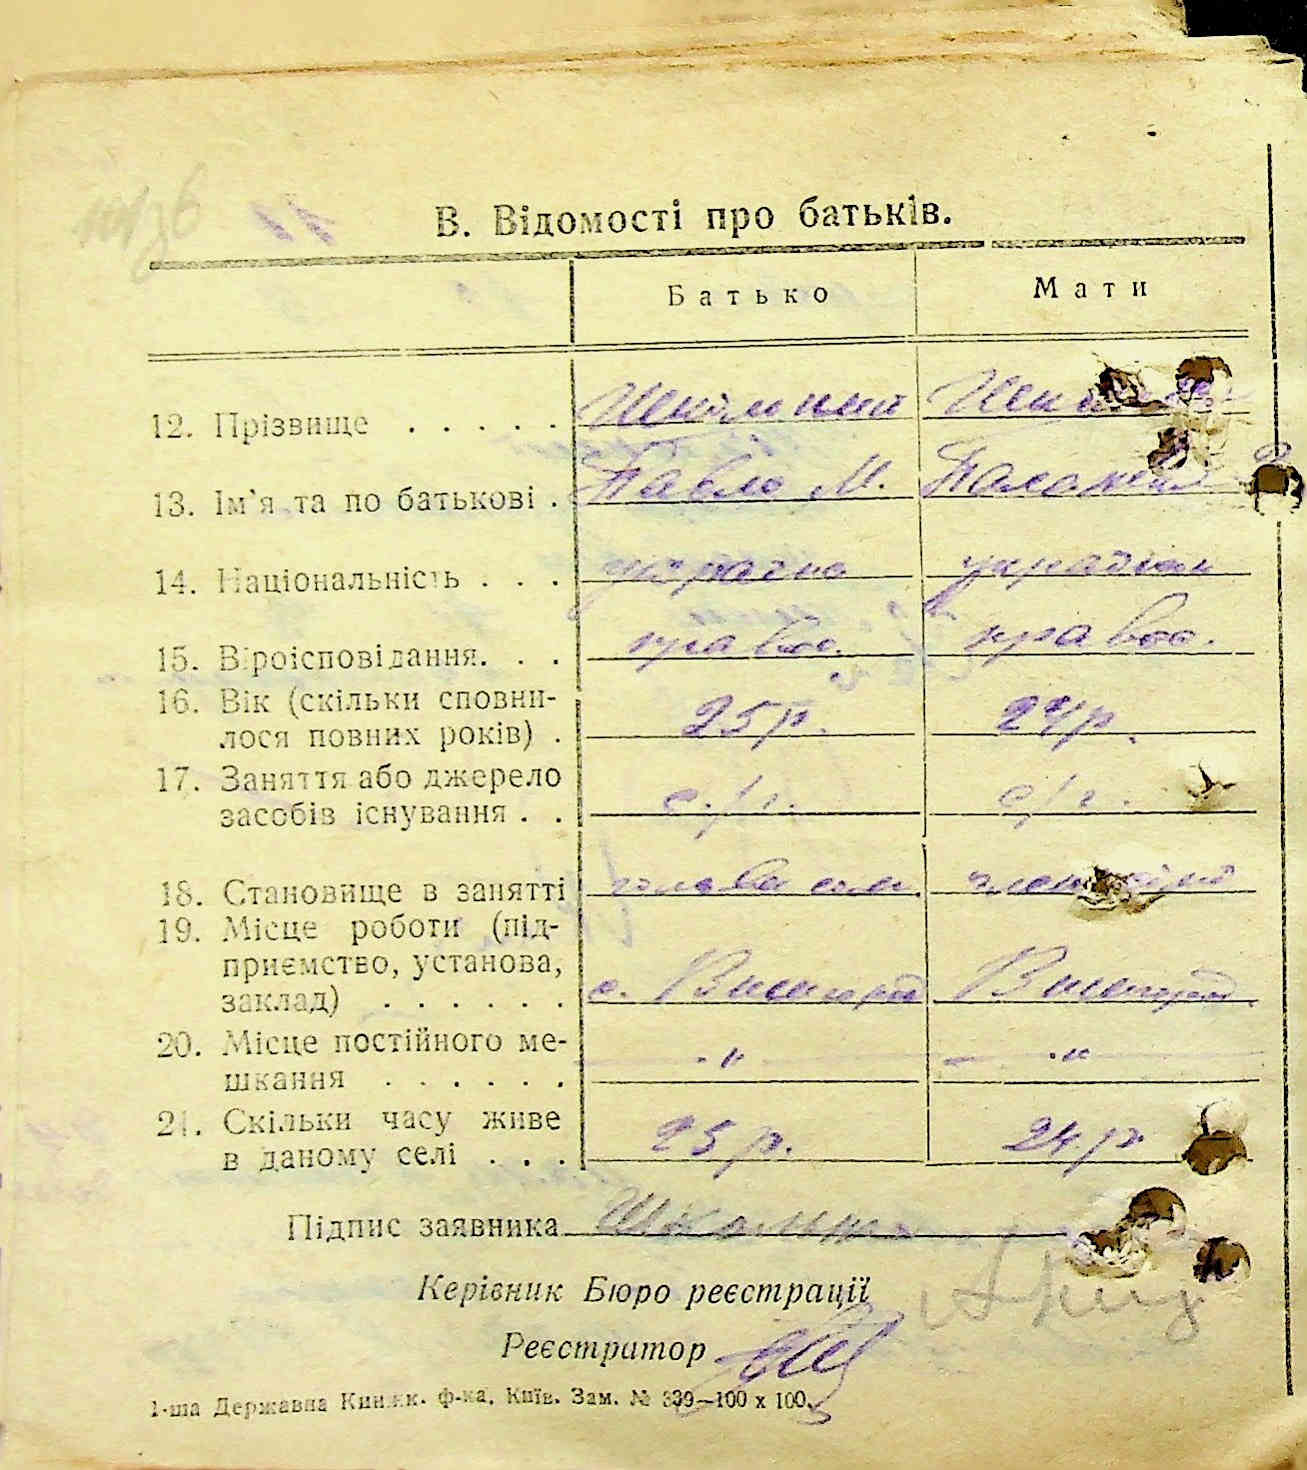 В. Відомості про батьків.
Батько Мати
12. Прізвище . . . . . Школьний
13. Ім'я та по батькові . Павло М. Палажка
14. Національність . . . україно україн
15. Віроісповідання. . . правос. правос.
16. Вік (скільки сповни-
лося повних років) . 25 р. 24 р.
17. Заняття або джерело
засобів існування . . с./г. с/г.
18. Становище в занятті голова сем. член сімї
19. Місце роботи (під-
приємство, установа,
заклад) . . . . . . с. Вишгород Вишгород
20. Місце постійного ме- — . " — — . "
шкання . . . . . .
21. Скільки часу живе
в даному селі . . . 25 р. 24 р
Підпис заявника Школьний
Керівник Бюро реєстрації
Реєстратор
1-ша Державна Книжк. ф-ка, Київ. Зам. № 339—100 х 100.